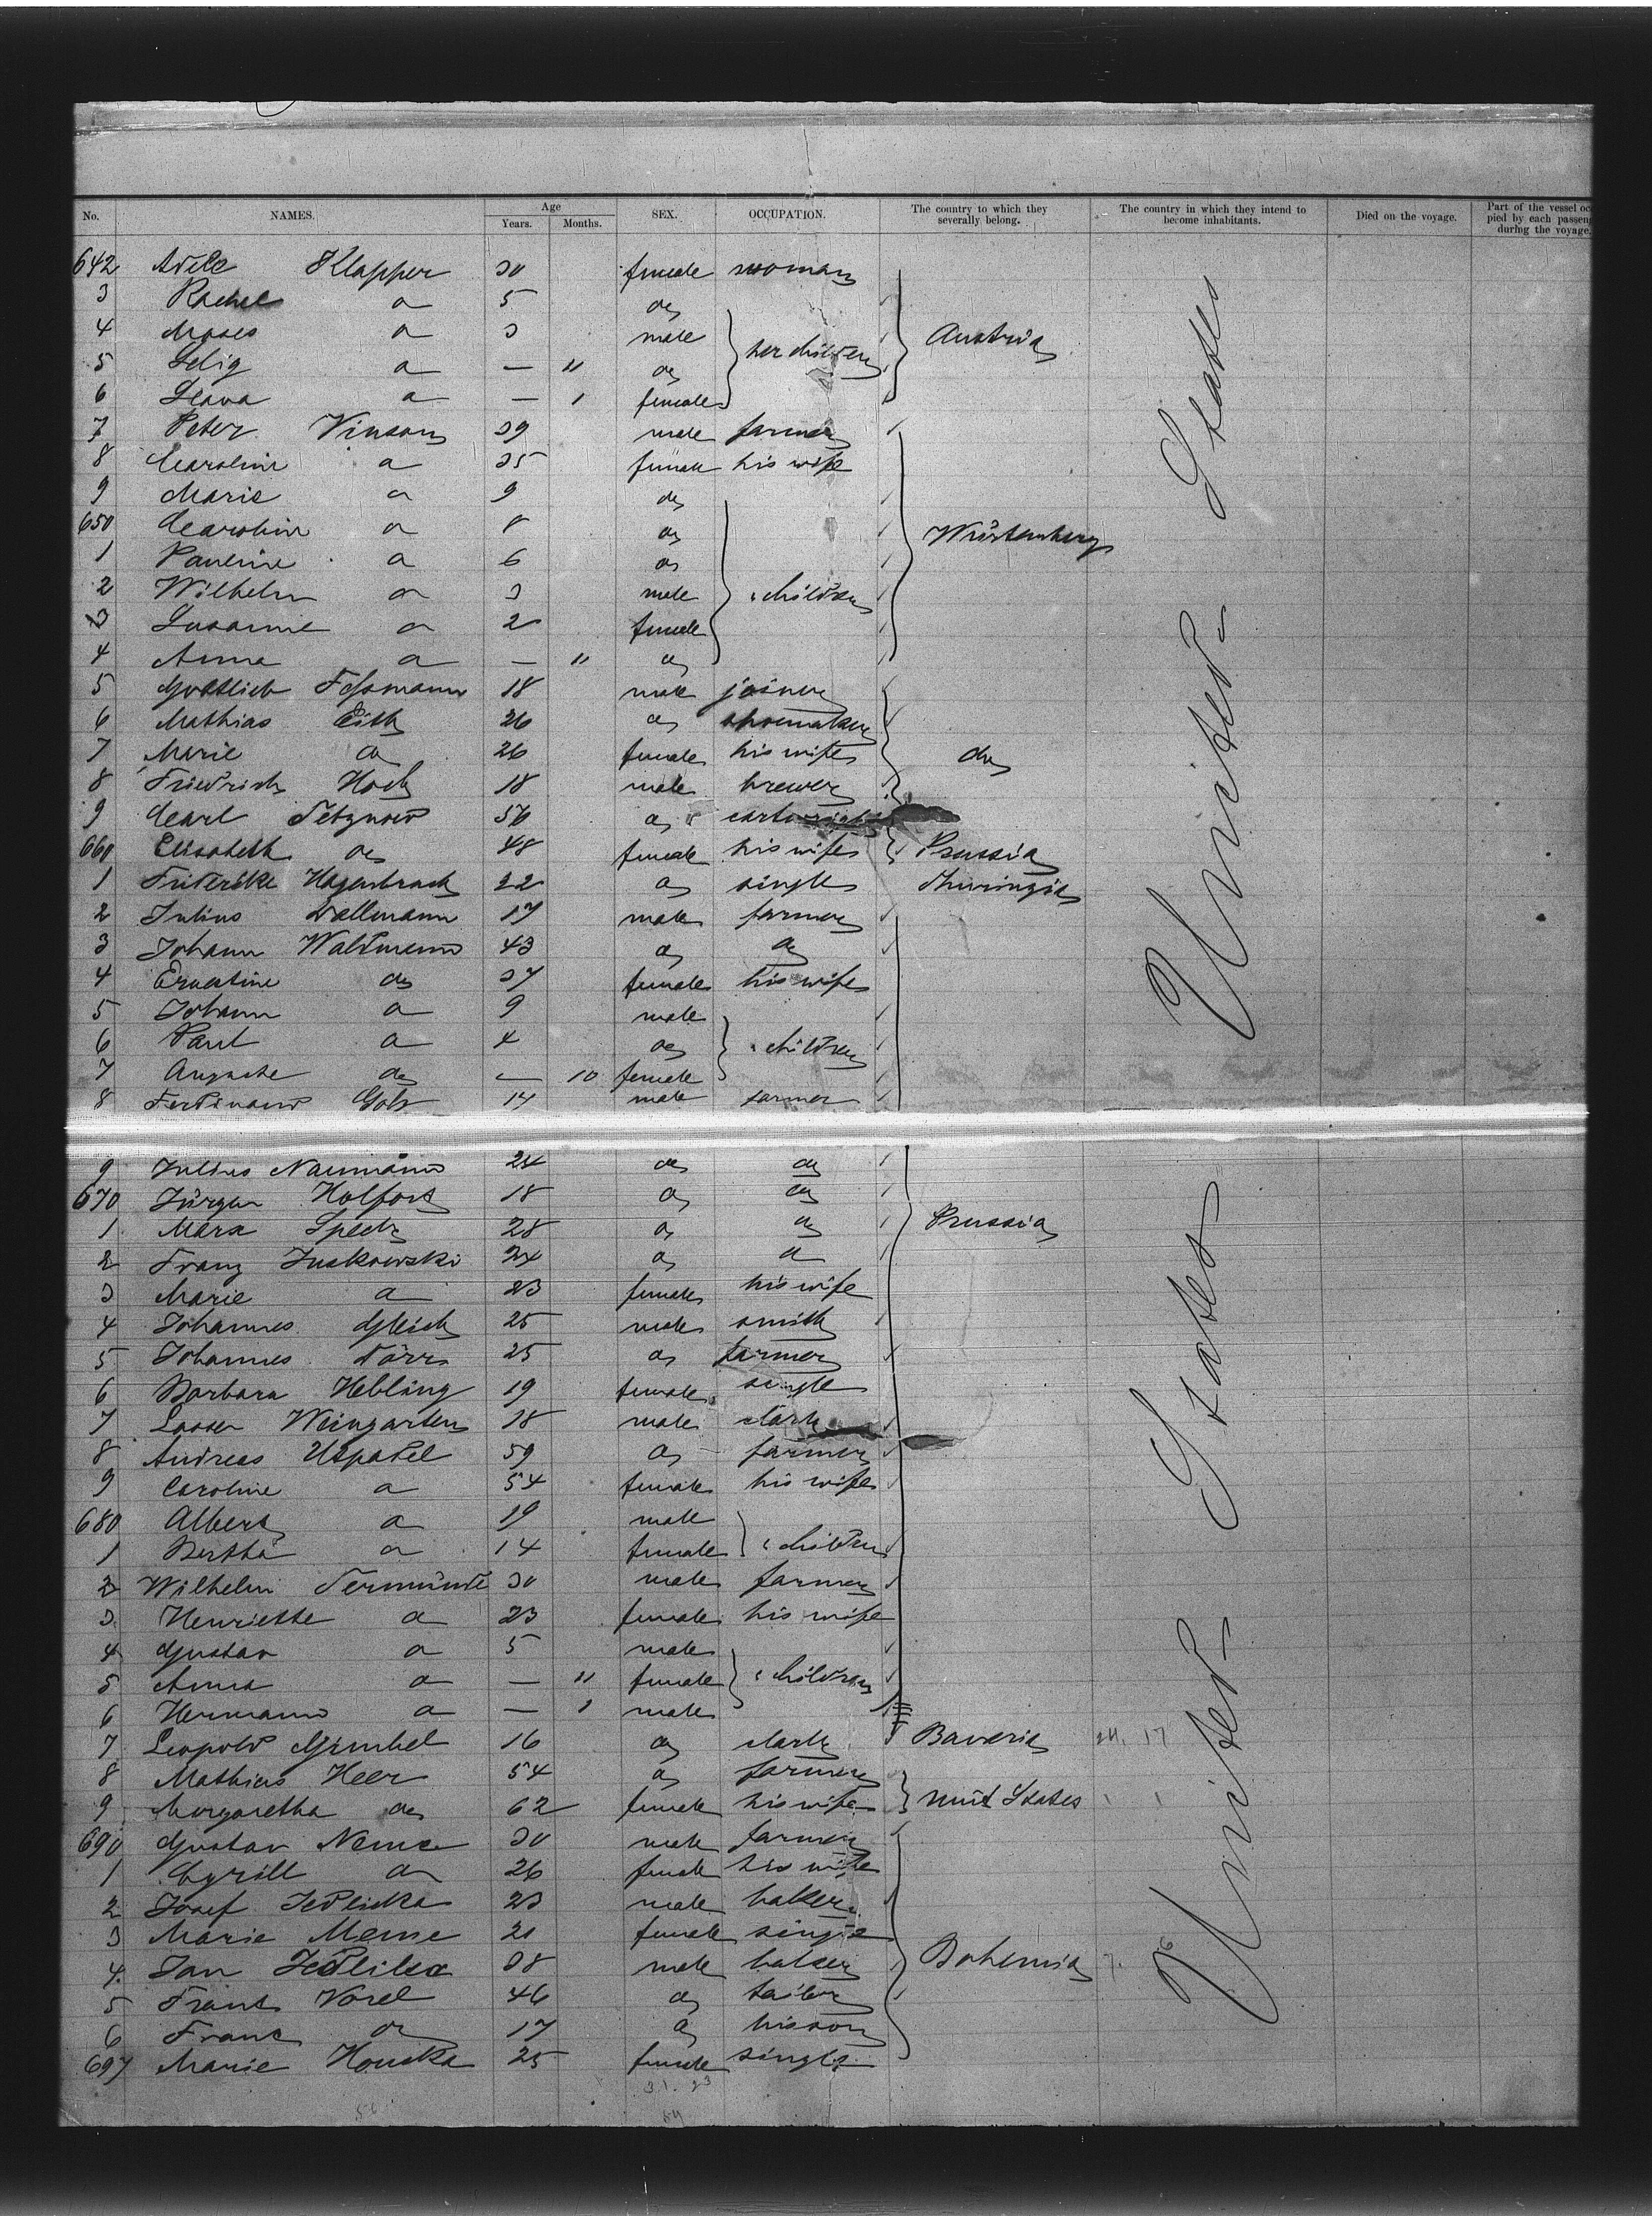 No. NAMES. Age Years. Months. SEX. OCCUPATION. The country to which they severally belong. The country in which they intend to become inhabitants. Died on the voyage. Part of the vessel oc pied by each passen during the voyage.
642 Adele Klapper 30 female woman
3 Rachel do 5 do
4 Moses do 3 male her children Austria
5 Selig do — 11 do
6 do — 1 female
7 Peter Vinson 39 male farmer
8 Caroline do 35 female his wife
9 Marie do 9 do
650 Carolin do 8 do Württemberg
1 Pauline do 6 do
2 Wilhelm do 3 male children
3 Susanne do 2 female
4 Anna do — 11 do
5 Gottlieb 18 male joiner
6 Mathias Eith 26 do shoemaker
7 Marie do 26 female his wife do
8 Friedrich Hoch 18 male brewer
9 Carl 56 do
660 Elisabeth do 48 female his wife Prussia
1 Friderike Hagenbruch 22 do single Thuringia
2 Julius Dallmann 17 male farmer
3 Johann Waldmann 43 do do
4 Ernestine do 37 female his wife
5 Johann do 9 male
6 Paul do 4 do children
7 Auguste do — 10 female
8 Ferdinand 14 male farmer
9 Julius Naumann 24 do do
670 Jürgen Holfort 18 do do
1 Specht 28 do do Prussia
2 Franz Juskowski 24 do do
3 Marie do 23 female his wife
4 Johannes Gleich 25 male smith
5 Johannes Dörr 25 do farmer
6 Barbara Hebling 19 female single
7 Lasser Weingarten 18 male clerk
8 Andreas Uspadel 59 do farmer
9 Caroline do 54 female his wife
680 Albert do 19 male
1 Bertha do 14 female children
2 Wilhelm 30 male farmer
3 Henriette do 23 female his wife
4 Gustav do 5 male
5 Anna do — 11 female children
6 Hermann do — 1 male
7 Leopold Gimbel 16 do clerk Bavaria 24. 17
8 Mathias Heer 54 do farmer
9 Margaretha do 62 female his wife Unit States
690 Gustav Nemc 30 male farmer
1 Cyrill do 26 female his wife
2 Josef Jedlicka 23 male baker
3 Marie 21 female single
4 Jan Jedlika 38 male baker Bohemia 7. 6
5 Franz Vorel 46 do tailor
6 Franz do 17 do his son
697 Marie Houska 25 female single
31. 23
56 54
United States
United States